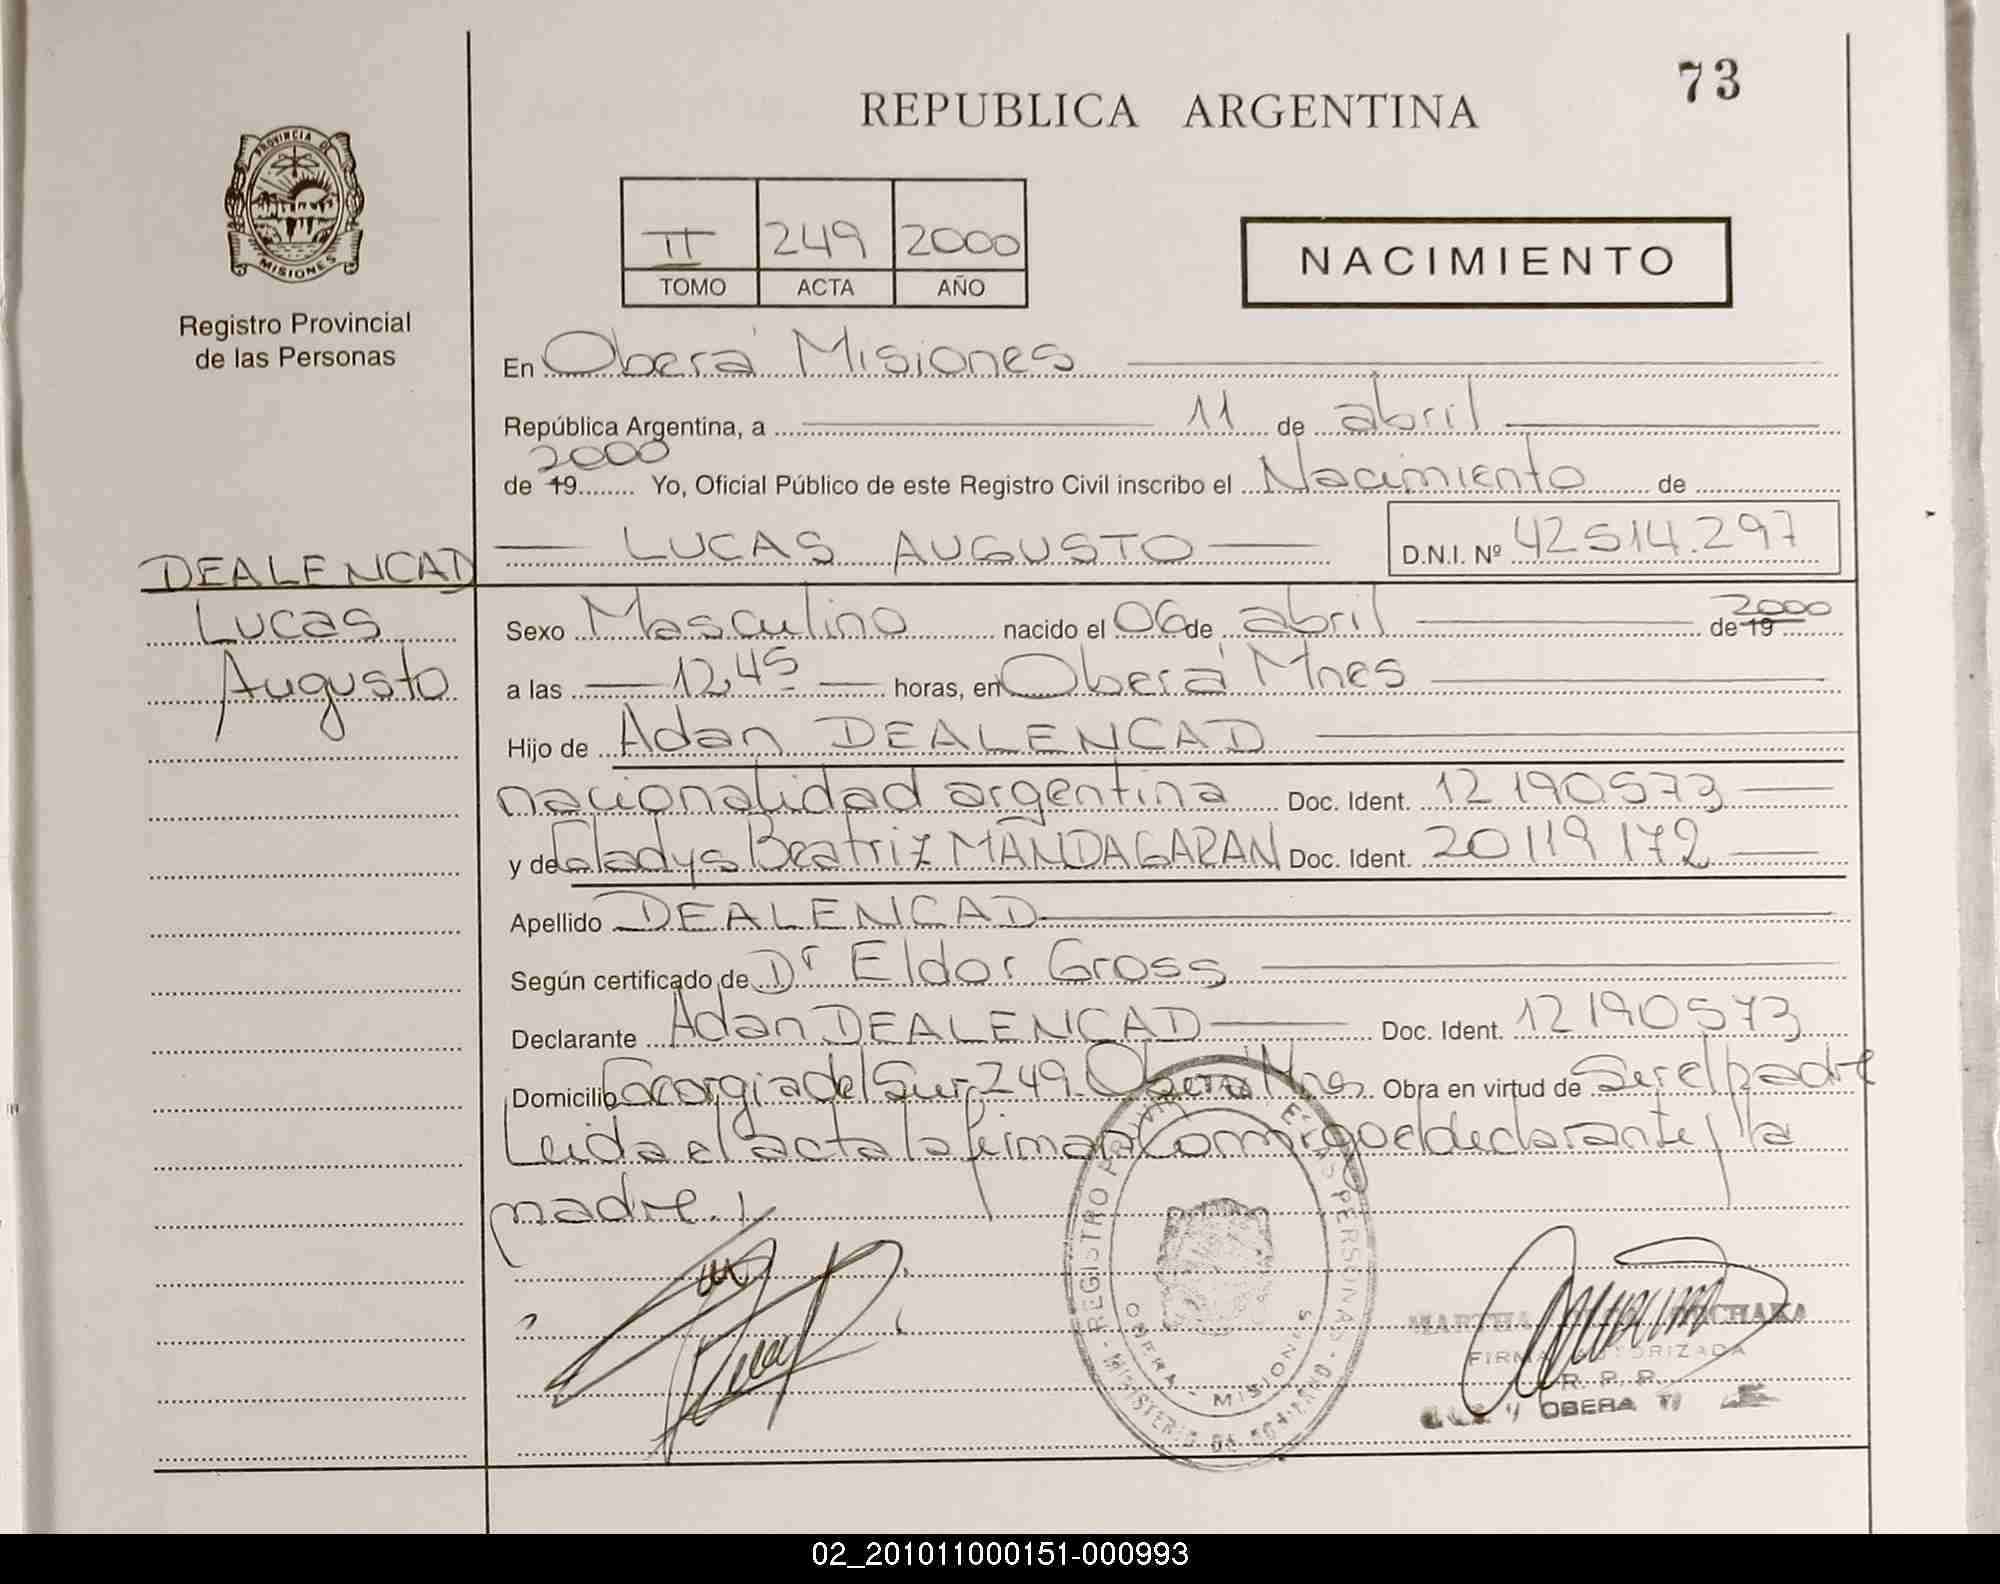 73
REPUBLICA ARGENTINA
PROVINCIA DE
MISIONES
Registro Provincial
de las Personas
II 249 2000
TOMO ACTA AÑO
NACIMIENTO
En Oberá Misiones
República Argentina, a 11 de abril
2000
de 19 Yo, Oficial Público de este Registro Civil inscribo el Nacimiento de
LUCAS AUGUSTO D.N.I. Nº 42514.297
DEALENCAD
Lucas
Augusto
Sexo Masculino nacido el 06 de abril de 19 2000
a las 12,45 horas, en Oberá Mnes
Hijo de Adan DEALENCAD
nacionalidad argentina Doc. Ident. 12190573
y de Gladys Beatriz MAÑDAGARAN Doc. Ident. 20119172
Apellido DEALENCAD
Según certificado de Dr Eldor Gross
Declarante Adan DEALENCAD Doc. Ident. 12190573
Domicilio Georgia del Sur 249 Oberá Mnes. Obra en virtud de Ser el padre
Leida el acta la firman conmigo el declarante y la
madre.
REGISTRO PROVINCIAL DE LAS PERSONAS
MINISTERIO DE GOBIERNO
OBERA - MISIONES
MARTHA
FIRMA AUTORIZADA
R. P. P.
OBERA
02_201011000151-000993